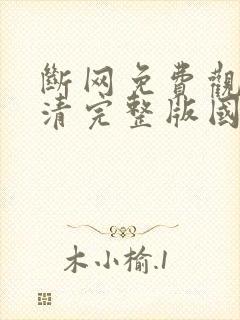 斷网免費觀
清完整版國
木小榆.1